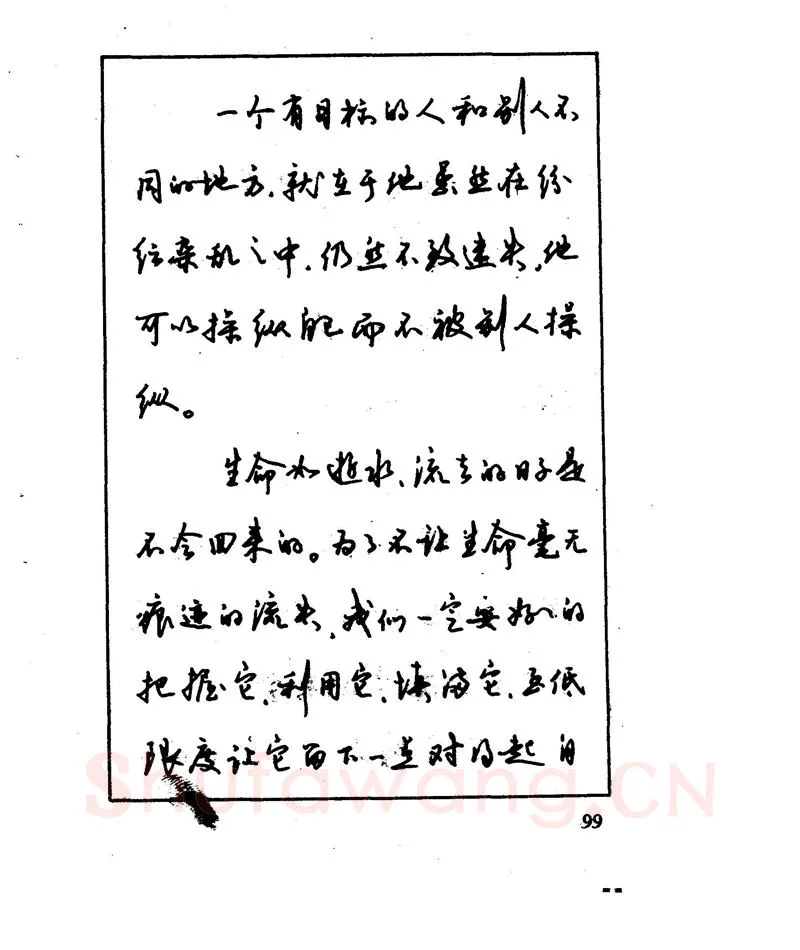 一个有目标的人和别人不
同的地方，就在于他虽然在纷
纭杂乱之中，仍然不致迷失，他
可以操纵自己而不被别人操
纵。
生命如逝水，流去的日子是
不会回来的。为了不让生命毫无
痕迹的流失，我们一定要好好的
把握它，利用它，填满它，至低
限度让它留下一点对得起自
99
Shufawang.CN